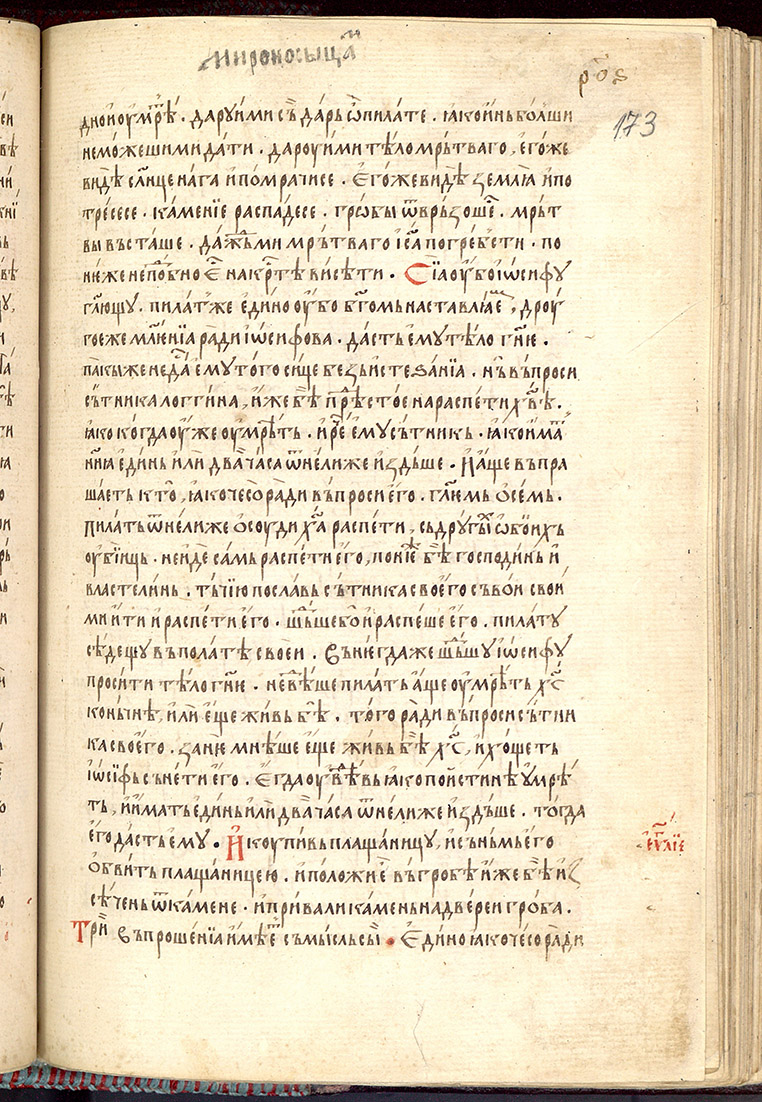 мироносыцамⷨ
ро҃ѕ
173
дно и оумрѣ́ · даруи́ ми съ́ да́рь ѡ҆ пила́те · ꙗ҆ко и҆нь бо́лши
не мо́жеши ми да́ти · дароуи́ ми тѣ́ло мрь́тваго , е҆го́же
ви́дѣ сл҃нце на́га и҆ помра́чисе · Е҆го́же ви́дѣ землꙗ̀ и҆ по
тре́сесе · ка́менїе распа́десе · грѡ́бы ѿврьзо́шеⷭ · мрьт
вы въста́ше · да́жⷣь ми мрь́тваго і҆с҃а погре́бсти · по
не́же неⷫ҇добно еⷭ҇ на крⷭ҇тѣ висѣ́ти · Сїꙗ̀ оу҆́бо і҆ѡ́сифу
гл҃ющу · пила́т же е҆ди́но оу҆́бо бг҃омь наставлꙗ́еⷨ , дроу
гое же мл҃е́нїа ра́ди і҆ѡ́сифова · да́сть е҆му тѣ́ло гн҃ѥ ·
па́кы же не да́ⷭ е҆му то́го си́це бе́зь и҆стеза́нїа · нь̀ въпроси
съ́тника логги́на , и҆́же бѣ̀ прⷣѣстое на распе́ти хв҃ѣ ·
ꙗ҆́ко когда̀ оу҆́же оу҆мрѣ́ть · и҆ реⷱ҇ е҆му съ́тникь · ꙗ҆́ко и҆ма́ⷮ
нн҃ꙗ е҆ди́нь и҆лѝ два̀ ча́са ѿне́лиже и҆здьше · И҆ а҆́ще въпра
ша́еть кто̀ , ꙗ҆́ко чесо̀ ра́ди въпроси е҆го · гл҃емь о҆ се́мь ·
пила́ть ѿне́лиже о҆соуди х҃а распе́ти , сь дру́гыⷨ ѡ҆бои́хь
оу҆бїи́ць · не и҆́де самь распе́ти е҆го , поне́же бѣ̀ господи́нь и҆
власте́линь · тъ́чїю посла́вь съ́тника своего̀ съ во́и свои́
ми и҆ти и҆ распе́ти е҆го · шⷣьше бо̀ и҆ распе́ше е҆го · пила́ту
сѣде́щу въ пола́тѣ свое́и · Вънѥгда́ же шⷣьшу і҆ѡ́сифу
проси́ти тѣ́ло гн҃ѥ · не вѣ́ⷣше пила́ть а҆́ще оу҆мрѣ́ть хⷭ҇
ко ны́нѣ , и҆лѝ е҆ще жи́вь бѣ̀ · то́го ра́ди въпроси съ́тни
ка свое́го · занѐ мнѣ́ше е҆ще жи́вь бѣ̀ хⷭ҇ , и҆ хо́щеть
і҆ѡ́сифь съне́ти е҆го · Е҆гда́ оу҆вѣ́дѣвь ꙗ҆́ко пои́стинѣ оу҆мрѣ́
ть , и҆ и҆́мать е҆ди́нь и҆лѝ два̀ ча́са ѿне́лиже и҆здьше · тогда
е҆го да́сть е҆му · И҆ коупи́вь плаща́ницу , и҆ сънь́мь е҆го
о҆бви́ть плаща́ницею · и҆ положи́ еⷢ҇ въ гробѣ́ и҆́же бѣ̀ и҆з
сѣ́чень ѿ ка́мене · и҆ прива́ли ка́мень на две́реи гро́ба ·
є҆ѵⷢ҇лїе
Трїи въпроше́нїа и҆мѣ́еⷮ съ мы́сль сы́ · Е҆ди́но ꙗ҆́ко чесо̀ ра́ди